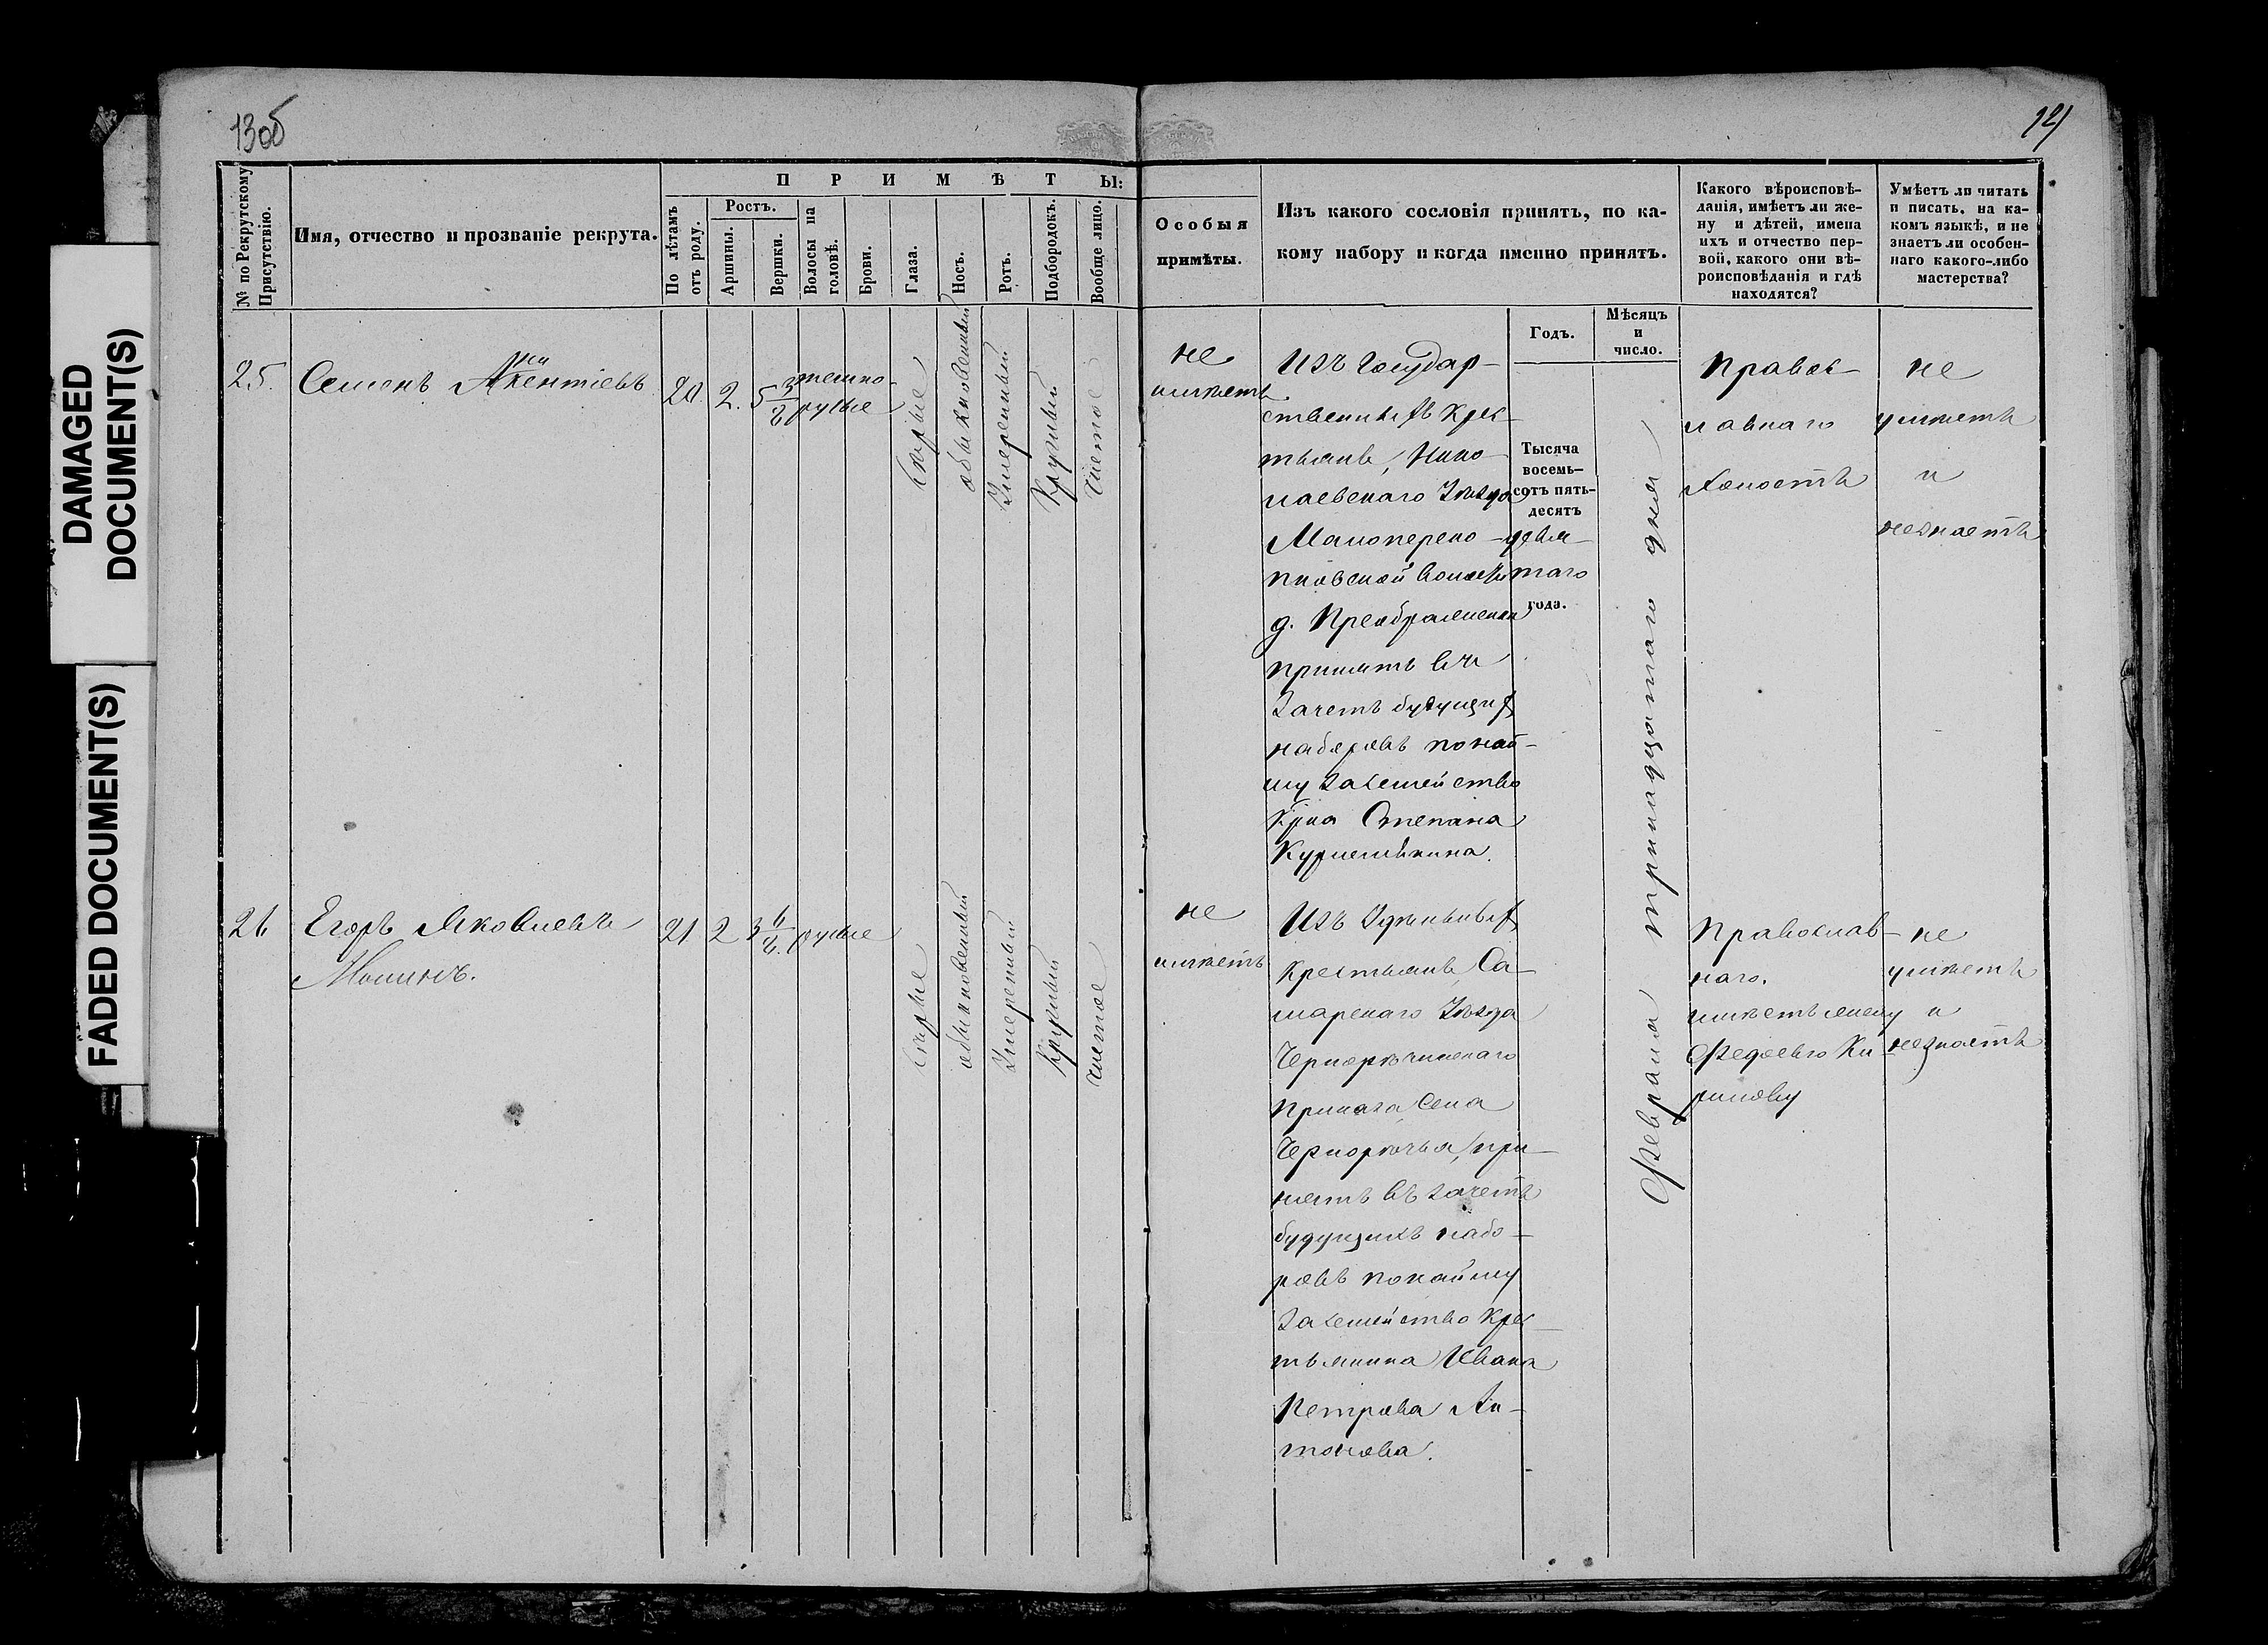 DAMAGED
DOCUMENT(S)
FADED DOCUMENT(S)
13об
П Р И М Ѣ Т Ы:
№ по Рекрутскому
Присутствію.
Имя, отчество и прозваніе рекрута.
По лѣтамъ
отъ роду.
Ростъ.
Аршины.
Вершки.
Волосы на
головѣ.
Брови.
Глаза.
Носъ.
Ротъ.
Подбородокъ.
Вообще лицо.
Особыя
примѣты.
Изъ какого сословія принятъ, по ка-
кому набору и когда именно принятъ.
Годъ.
Мѣсяцъ
и
число.
Какого вѣроисповѣ-
данія, имѣетъ ли же-
ну и дѣтей, имена
ихъ и отчество пер-
вой, какого они вѣ-
роисповѣданія и гдѣ
находятся?
Умѣетъ ли читать
и писать, на ка-
комъ языкѣ, и не
знаетъ ли особен-
наго какого-либо
мастерства?
25.
Семенъ Акентіевъ
20.
2.
5
темно-
русые
Сѣрые
обыкновенный
Умеренный
Круглый
Чистое
не
имѣетъ
Изъ Государ-
ственныхъ Крес-
тьянъ, Нико-
лаевскаго Уѣзда
Малоперекo-
пновской волости
д. Преображенки
принятъ въ
Зачетъ будущих
наборовъ по най-
му За семейство
Кр-на Степана
Тысяча
восемь-
сотъ пять-
десятъ
девя-
таго
года.
Февраля тринадцатаго дня
Правос-
лавнаго
Холостъ
не
умѣетъ
и
незнаетъ
26
Егоръ Яковлевъ
21
2
3
русые
Сѣрые
обыкновенный
Умеренный
Круглый
чистое
не
имѣетъ
Изъ Удѣльныхъ
Крестьянъ, Са-
марскаго Уѣзда
Чернорѣчинскаго
Приказа, Села
Чернорѣчья, при-
нятъ въ зачетъ
будущихъ набо-
ровъ по найму
За семейство Крес-
тьянина Ивана
Петрова Ан-
тонова.
Православ-
наго.
имѣетъ жену
не
умѣетъ
и
незнаетъ